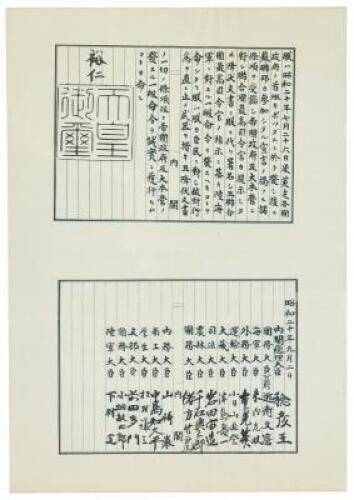 朕ハ昭和二十年七月二十六日米英支各國
政府ノ首班カポツダムニ於テ發シ後ニ
蘇聯邦カ參加シタル宣言ノ掲クル諸
條項ヲ受諾シ帝國政府及大本營ニ
對シ聯合國最高司令官カ提示シタ
ル降伏文書ニ朕ニ代リ署名シ且聯合
國最高司令官ノ指示ニ基キ陸海
軍ニ對スル一般命令ヲ發スヘキコトヲ
命シタリ朕ハ朕カ臣民ニ對シ敵對行
爲ヲ直ニ止メ武器ヲ措キ且降伏文書
内閣
ノ一切ノ條項竝ニ帝國政府及大本營ノ
發スル一般命令ヲ誠實ニ履行セム
コトヲ命ス
裕仁
天皇
御璽
昭和二十年九月二日
内閣總理大臣 稔彦王
國務大臣公爵 近衞文麿
海軍大臣 米内光政
外務大臣 重光葵
運輸大臣 小日山直登
大藏大臣 津島壽一
司法大臣 岩田宙造
農林大臣 千石興太郎
國務大臣 緒方竹虎
内閣
内務大臣 山崎巖
商工大臣 中島知久平
厚生大臣 松村謙三
文部大臣 前田多門
國務大臣 小畑敏四郎
陸軍大臣 下村定